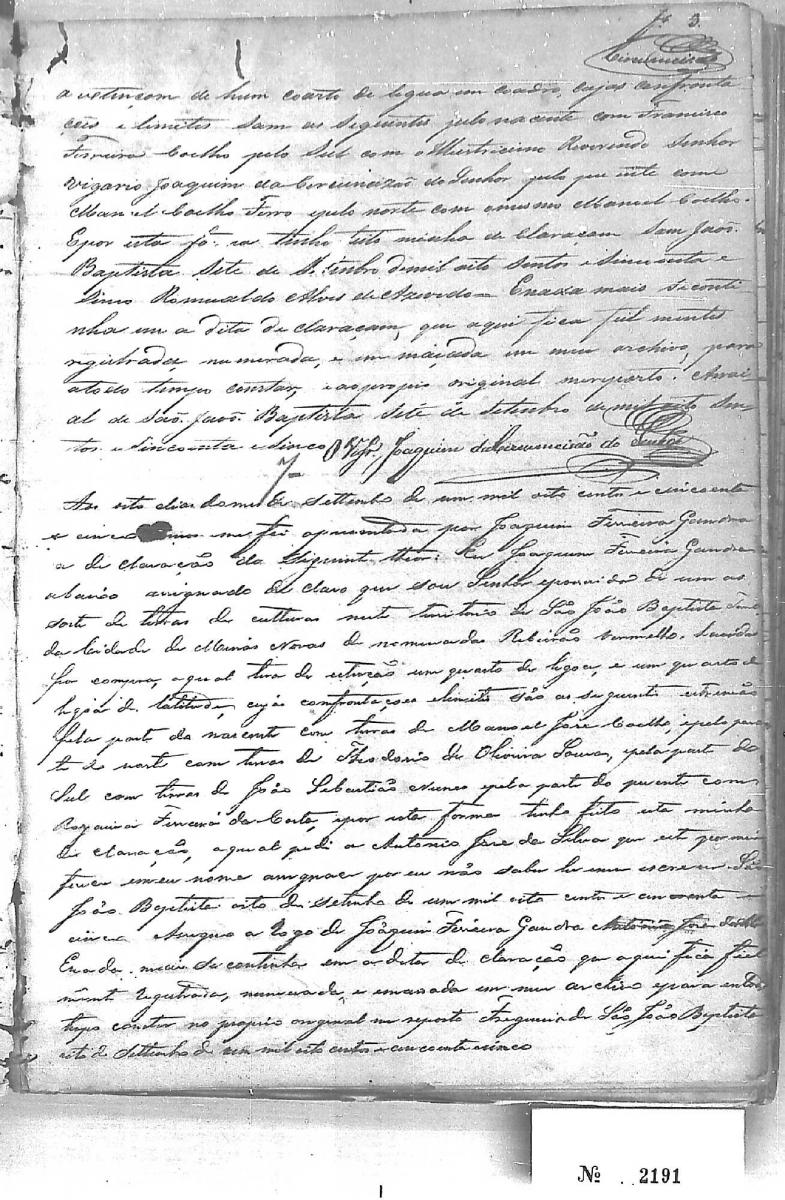 fl 3
Circuncisão
a estinçam de hum coarto de legua em coadro, cujas confronta
cois e limites sam os seguintes pelo nacente com Francisco
Ferreira Coelho pelo Sul com o Illustricimo Reverendo Senhor
Vigario Joaquim da Circuncizão do Senhor pelo poente com
Manoel Coelho Ferro e pelo norte com o mesmo Manoel Coelho.
E por esta fo ra tenho feito minha de Claraçam Sam Jaõ
Baptista Sete de Setenbro de mil oito Sentos e Sincoenta e
Sinco Romualdo Alves de Azevedo = E nada mais se conti
nha em a dita de claraçam, que aqui fica fiel mente
registrada, numerada, e in maçada em meu archivo, para
a todo tempo constar, e ao propio original me reporto. Arrai
al de Saõ Jaõ Baptista Sete de Setenbro de mil oito Sen
tos e Sincoenta e Sinco O Vigr.º Joaquim da Circuncisão do Senhor
7
Aos oito dias do mez de Settenbro de um mil oito centos e cincoenta
e cinco me foi aprezentada por Joaquim Ferreira Gandra
a de claração do Siguinte theor: Eu Joaquim Ferreira Gandra
abaixo assignado de claro que sou Senhor e possuidor de um as
sorte de terras de culturas neste territorio de São João Baptista Termo
da Cidade de Minas Novas de nominadas Ribeirão Vermelho, havidas
por compra, a qual terá de estenção um quarto de legoa, e um quarto de
legoa de latitude, cujas confrontações e limites são as seguintes extremão
pela parte do nascente com terras de Manoel José Coelho, e pela par
te do norte com terras de Theodorio de Oliveira Souza, pela parte do
Sul com terras de João Sebastião Nunes e pela parte do poente com
Ferreira da Costa, e por esta forma tenho feito esta minha
de claração, a qual pedi a Antonio Jose da Silva que este por mim
fizesse em eu nome assignace por eu não saber ler nem escrever São
João Baptista oito de Setenbro de um mil oito centos e cincoenta e
cinco Assigno a rogo de Joaquim Ferreira Gandra Antonio Jose da Silva
E nada mais se continha em a dita de claração que aqui fica fiel
mente registrada, numerada, e emassada em meu archivo e para a todo
tempo constar no proprio original me reporto Freguezia de São João Baptista
oito de Settenbro de um mil oito centos e cincoenta e cinco
Nº 2191